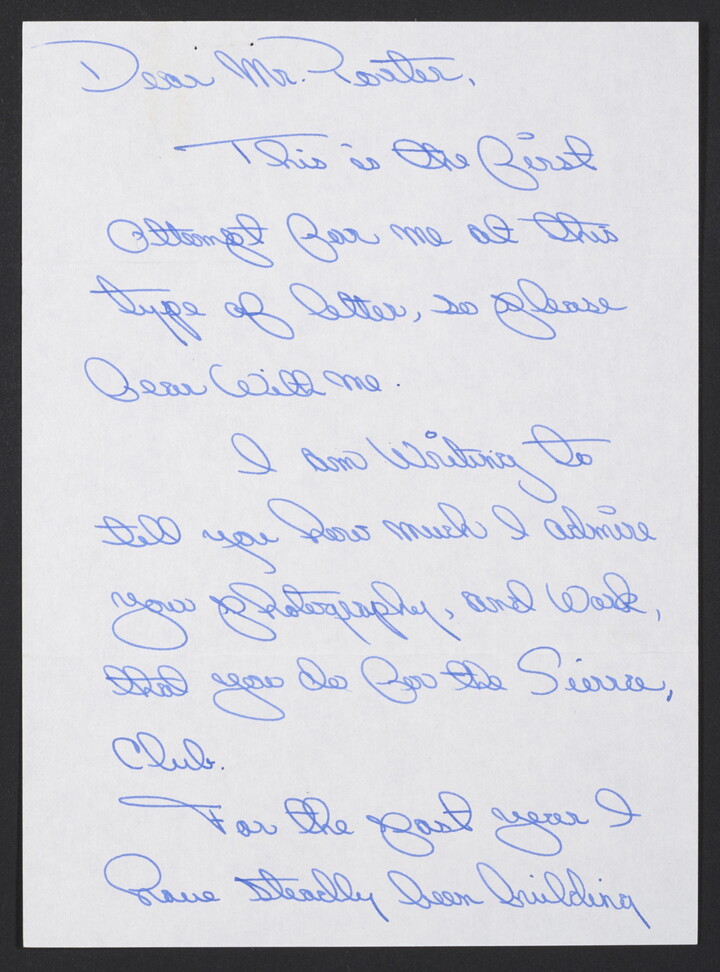 Dear Mr. Porter,
This is the first
attempt for me at this
type of letter, so please
Bear With me.
I am Writing to
tell you how much I admire
your photography, and Work,
that you do for the Sierra,
Club.
For the past year I
have steadly been building